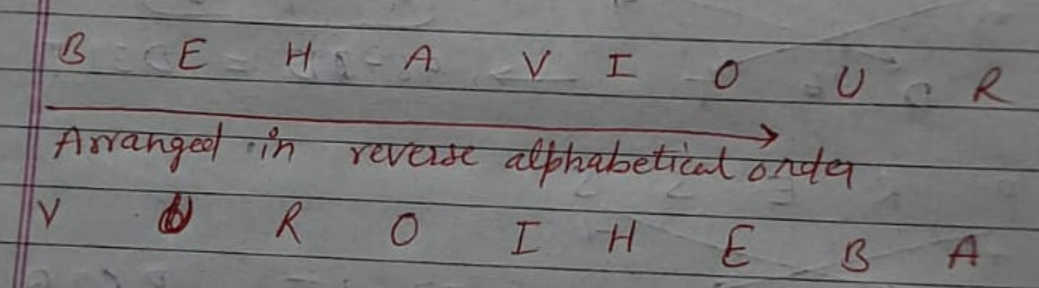 B E H A V I O U R
Arranged in reverse alphabetical order
V U R O I H E B A